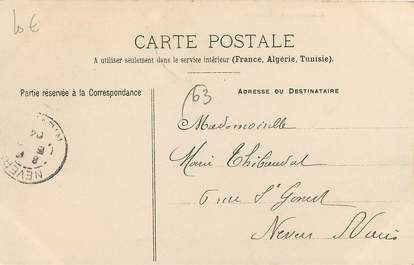 10 €
CARTE POSTALE
A utiliser seulement dans le service intérieur (France, Algérie, Tunisie).
Partie réservée à la Correspondance
ADRESSE DU DESTINATAIRE
63
Mademoiselle
Marie Thibaudat
6 rue St Genest
Nevers
NEVERS